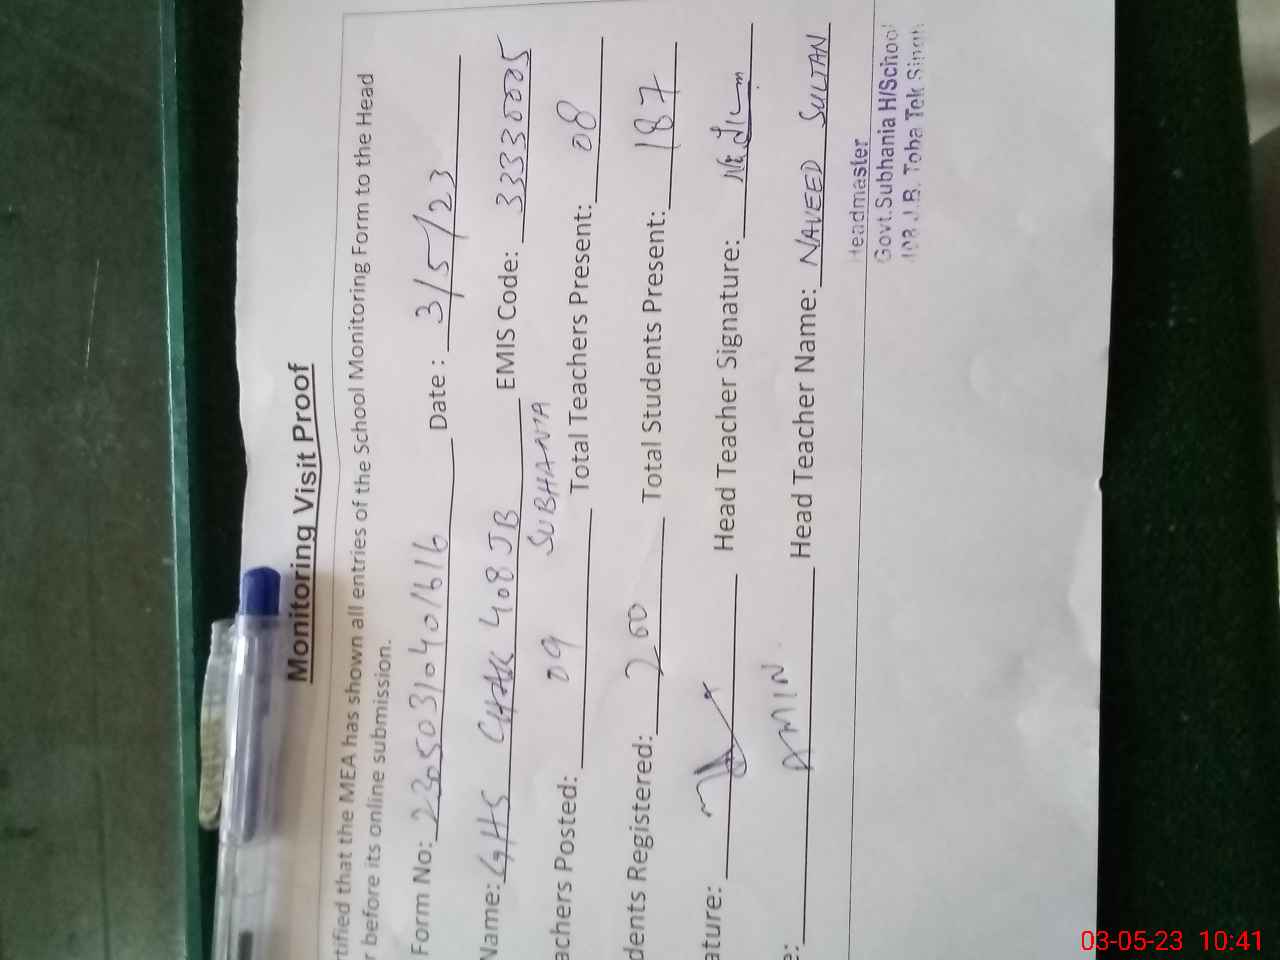 Monitoring Visit Proof
rtified that the MEA has shown all entries of the School Monitoring Form to the Head
r before its online submission.
Form No: 23050310401616 Date : 3/5/23
Name: GHS CHAK 408 JB EMIS Code: 33330005
SUBHANIA
achers Posted: 09 Total Teachers Present: 08
dents Registered: 200 Total Students Present: 187
ature: Head Teacher Signature:
e: AMIN Head Teacher Name: NAVEED SULTAN
Headmaster
Govt.Subhania H/School
408 J.B. Toba Tek Singh
03-05-23 10:41